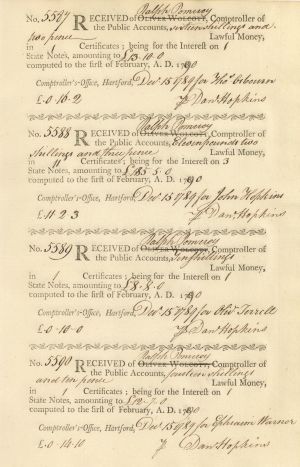 Ralph Pomeroy
No. 5587 RECEIVED of OLIVER WOLCOTT, Comptroller of
the Public Accounts, sixteen shillings and
two pence Lawful Money,
in 1 Certificates; being for the Interest on 1
State Notes, amounting to £13.10.0
computed to the first of February, A. D. 1790
Comptroller's-Office, Hartford, Dec 15 1789 for Thos Osbourn
£.0.16.2 Danl Hopkins
Ralph Pomeroy
No. 5588 RECEIVED of OLIVER WOLCOTT, Comptroller of
the Public Accounts, Eleven pounds two
shillings and three pence Lawful Money,
in 11 Certificates; being for the Interest on 3
State Notes, amounting to £185.5.0
computed to the first of February, A. D. 1790
Comptroller's-Office, Hartford, Dec 15 1789 for John Hopkins
£.11.2.3 Danl Hopkins
Ralph Pomeroy
No. 5589 RECEIVED of OLIVER WOLCOTT, Comptroller of
the Public Accounts, Ten shillings
Lawful Money,
in 1 Certificates; being for the Interest on 1
State Notes, amounting to £8.8.0
computed to the first of February, A. D. 1790
Comptroller's-Office, Hartford, Dec 15 1789 for Terrell
£.0.10.0 Danl Hopkins
Ralph Pomeroy
No. 5590 RECEIVED of OLIVER WOLCOTT, Comptroller of
the Public Accounts, fourteen shillings
and ten pence Lawful Money,
in 1 Certificates; being for the Interest on 1
State Notes, amounting to £12.7.0
computed to the first of February, A. D. 1790
Comptroller's-Office, Hartford, Dec 15 1789 for Ephraim Warner
£.0.14.10 Danl Hopkins